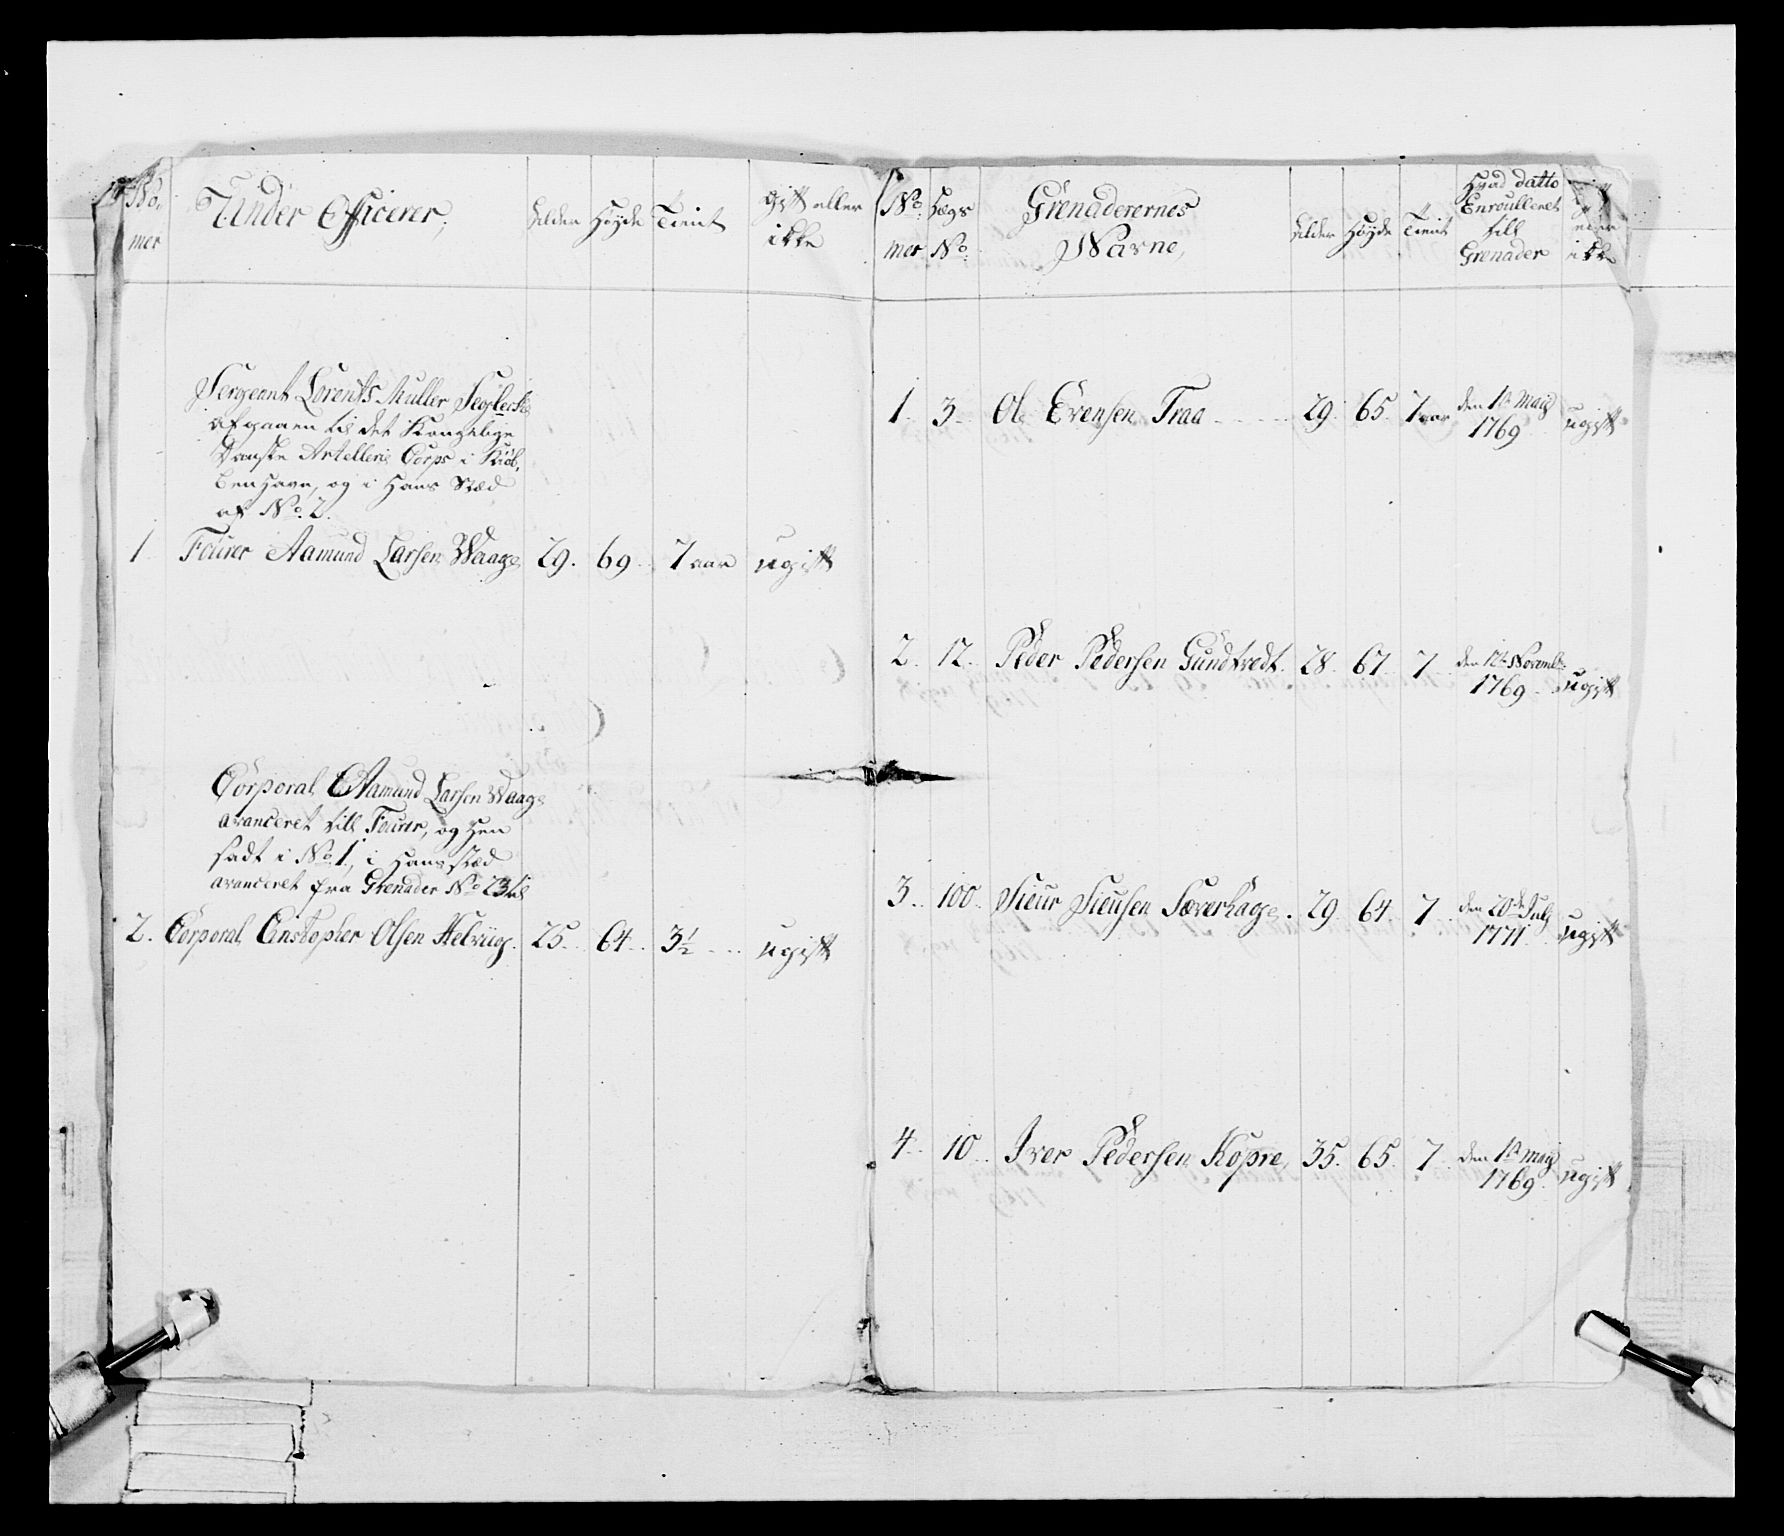 No.
mer
Under Officerer,
Alder
Høyde
Tient
gift eller
ikke
Sergeant Lorents Muller Segelcke
afgaaen til det Kongelige
Danske Artellerie Corps i Kiöb,
benhavn, og i hans Stæd
af No. 2.
1 Fourer Aamund Larsen Waage 29. 69 7 aar ugift
Corporal Aamund Larsen Waage
avanceret till Fourer, og hen
sadt i No. 1, i hans stæd
avanceret fra Grenader No 23 til
2. Corporal Christopher Olsen Helvüg. 25. 64. 3½ ugift
No.
mer
Lægs
No.
Grenaderernes
Navne,
Alder
Høyde
Tient
Hvad datto
Enroulleret
till
Grenader
gift
eller
ikke
1. 3. Ole Evensen Traa 29. 65. 7 aar den 1te Maij
1769 ugift
2. 12. Peder Pedersen Gundtvedt. 28. 67. 7 den 12te Novembr:
1769 ugift
3. 100. Siur Siursen Sæverhage. 29. 64. 7. den 20de July
1771 ugift
4. 10 Iver Pedersen Kopre, 35. 65. 7. den 1te Maij
1769 ugift